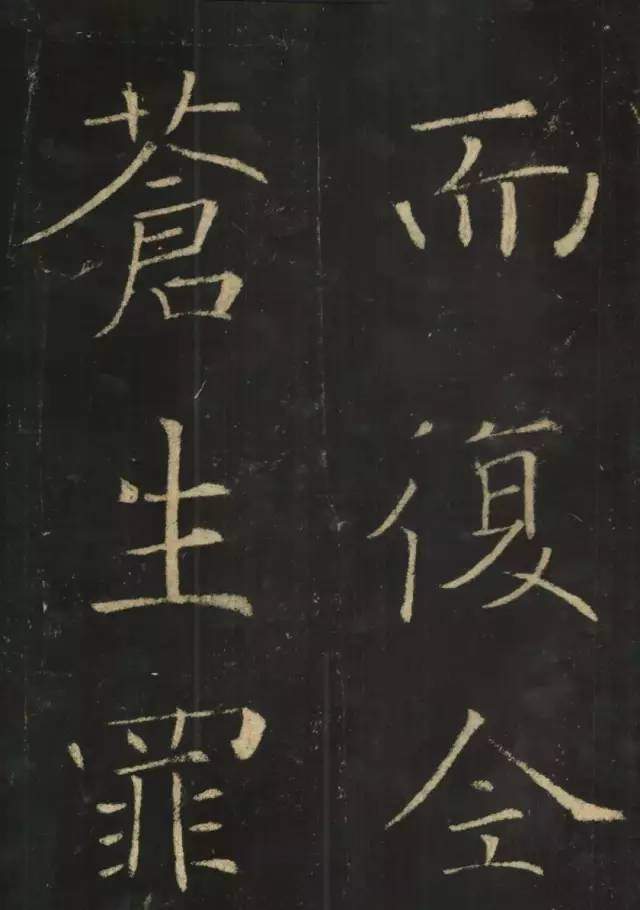 而復全
蒼生罪